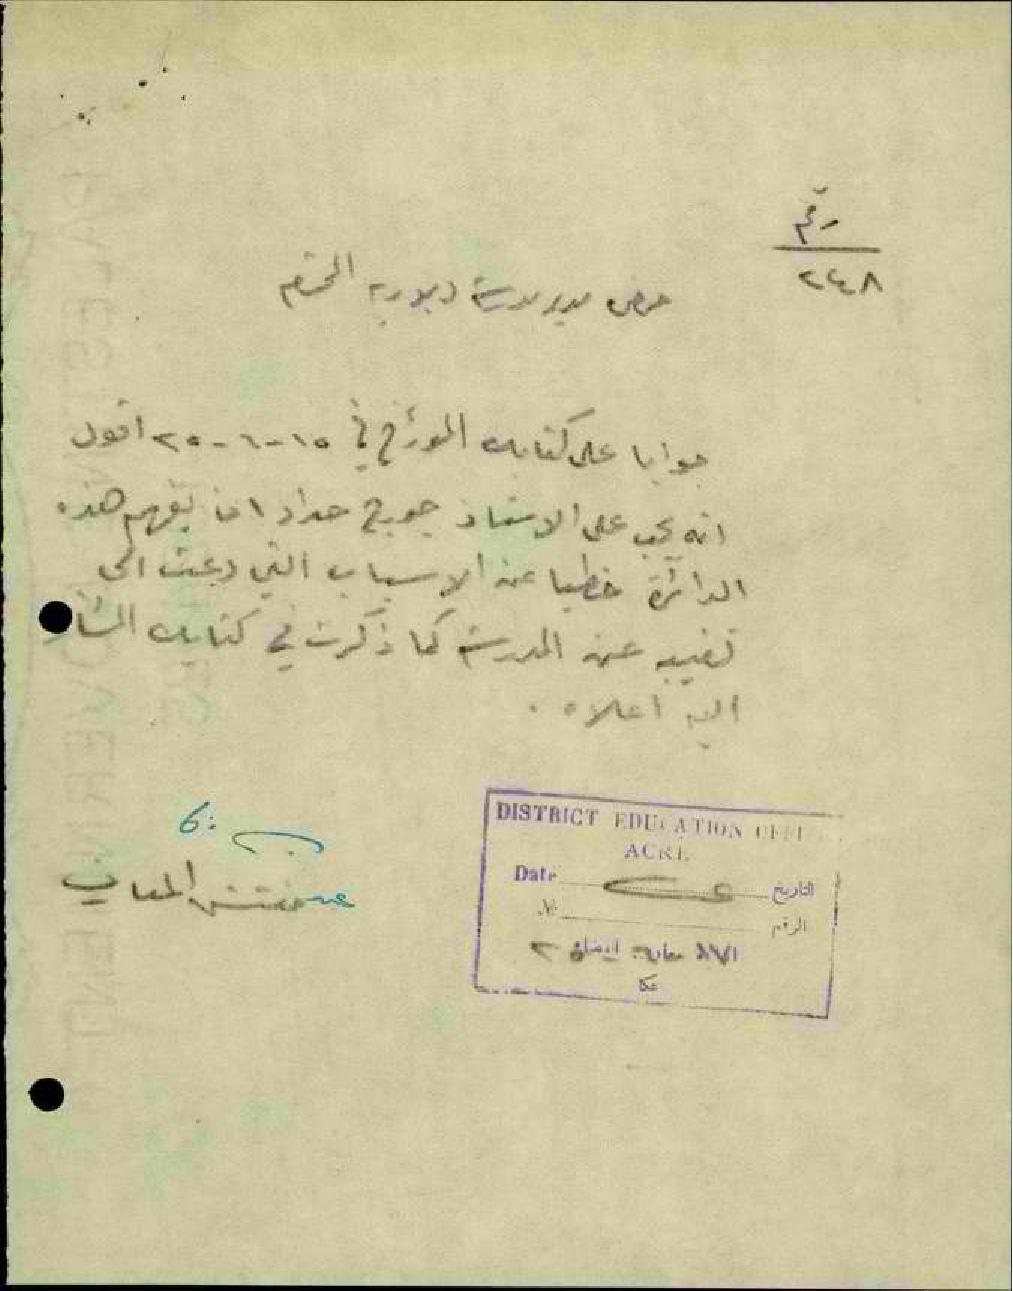 رقم
٢٤٨
حضرة مدير مدرسة دبوريه المحترم
جوابا على كتابك المؤرخ في ١٥-٦-٢٥ اقول
انه يجب على الاستاذ جورج حداد ان يفهم هذه
الدائرة خطيا عن الاسباب التي دعت الى
تغيبه عن المدرسة كما ذكرت في كتابك المشار
اليه اعلاه .
DISTRICT EDUCATION OFFI
ACRE
Date التاريخ
№ الرقم
عكا
عن مفتش المعارف